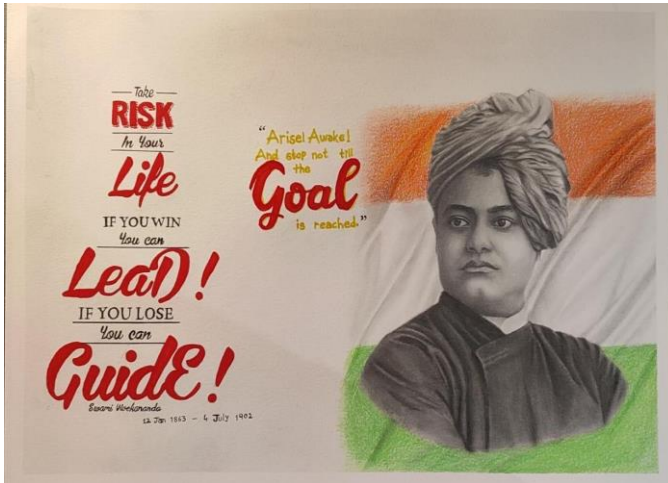 Take
RISK
In Your
Life
IF YOU WIN
You can
LeaD!
IF YOU LOSE
You can
GuidE!
Swami Vivekananda
12 Jan 1863 - 4 July 1902
"Arise! Awake!
And stop not till
the
Goal
is reached."